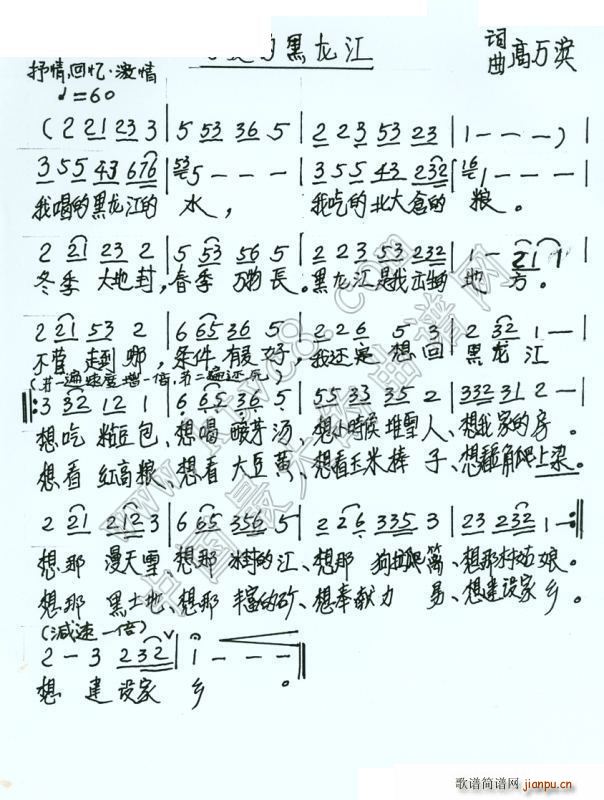 的黑龙江
词
曲 高万浜
抒情.回忆.激情
♩=60
(2 21 23 3 | 5 53 36 5 | 2 23 53 23 | 1 - - - )
3 55 43 676 | 535 - - - | 3 55 43 232 | 161 - - - |
我喝的黑龙江的 水, 我吃的北大仓的 粮。
2 21 23 2 | 5 53 56 5 | 2 23 53 232 | 1 - 21 1 |
冬季 大地封,春季 万物長。黑龙江是我出生的 地 方。
2 21 53 2 | 6 65 36 5 | 2 26 5 3 | 2 32 1 - |
不管 走到 哪,条件 有多 好,我还是 想回 黑龙 江
(第一遍速度增一倍,第二遍还元)
3 32 12 1 | 6 65 36 5 | 55 33 35 2 | 332 31 2 - |
想吃 粘豆包、想喝 酸芽汤、想小時候堆雪人、想我家的房。
想看 红高粮、想看 大豆黄、想看玉米棒 子、想看角爬上梁。
2 21 212 3 | 6 65 356 5 | 2 26 335 3 | 23 232 1 -
想那 漫天雪、想那 冰封的江、想那 狗拉爬篱、想那村姑娘。
想那 黑土地、想那 丰富的矿、想奉献力 易、想建设家 乡。
(減速一倍)
2 - 3 232 | 1 - - -
想 建设家 乡 。
www.jpwc8.com
中国最大的曲谱网
歌谱简谱网
jianpu.cn